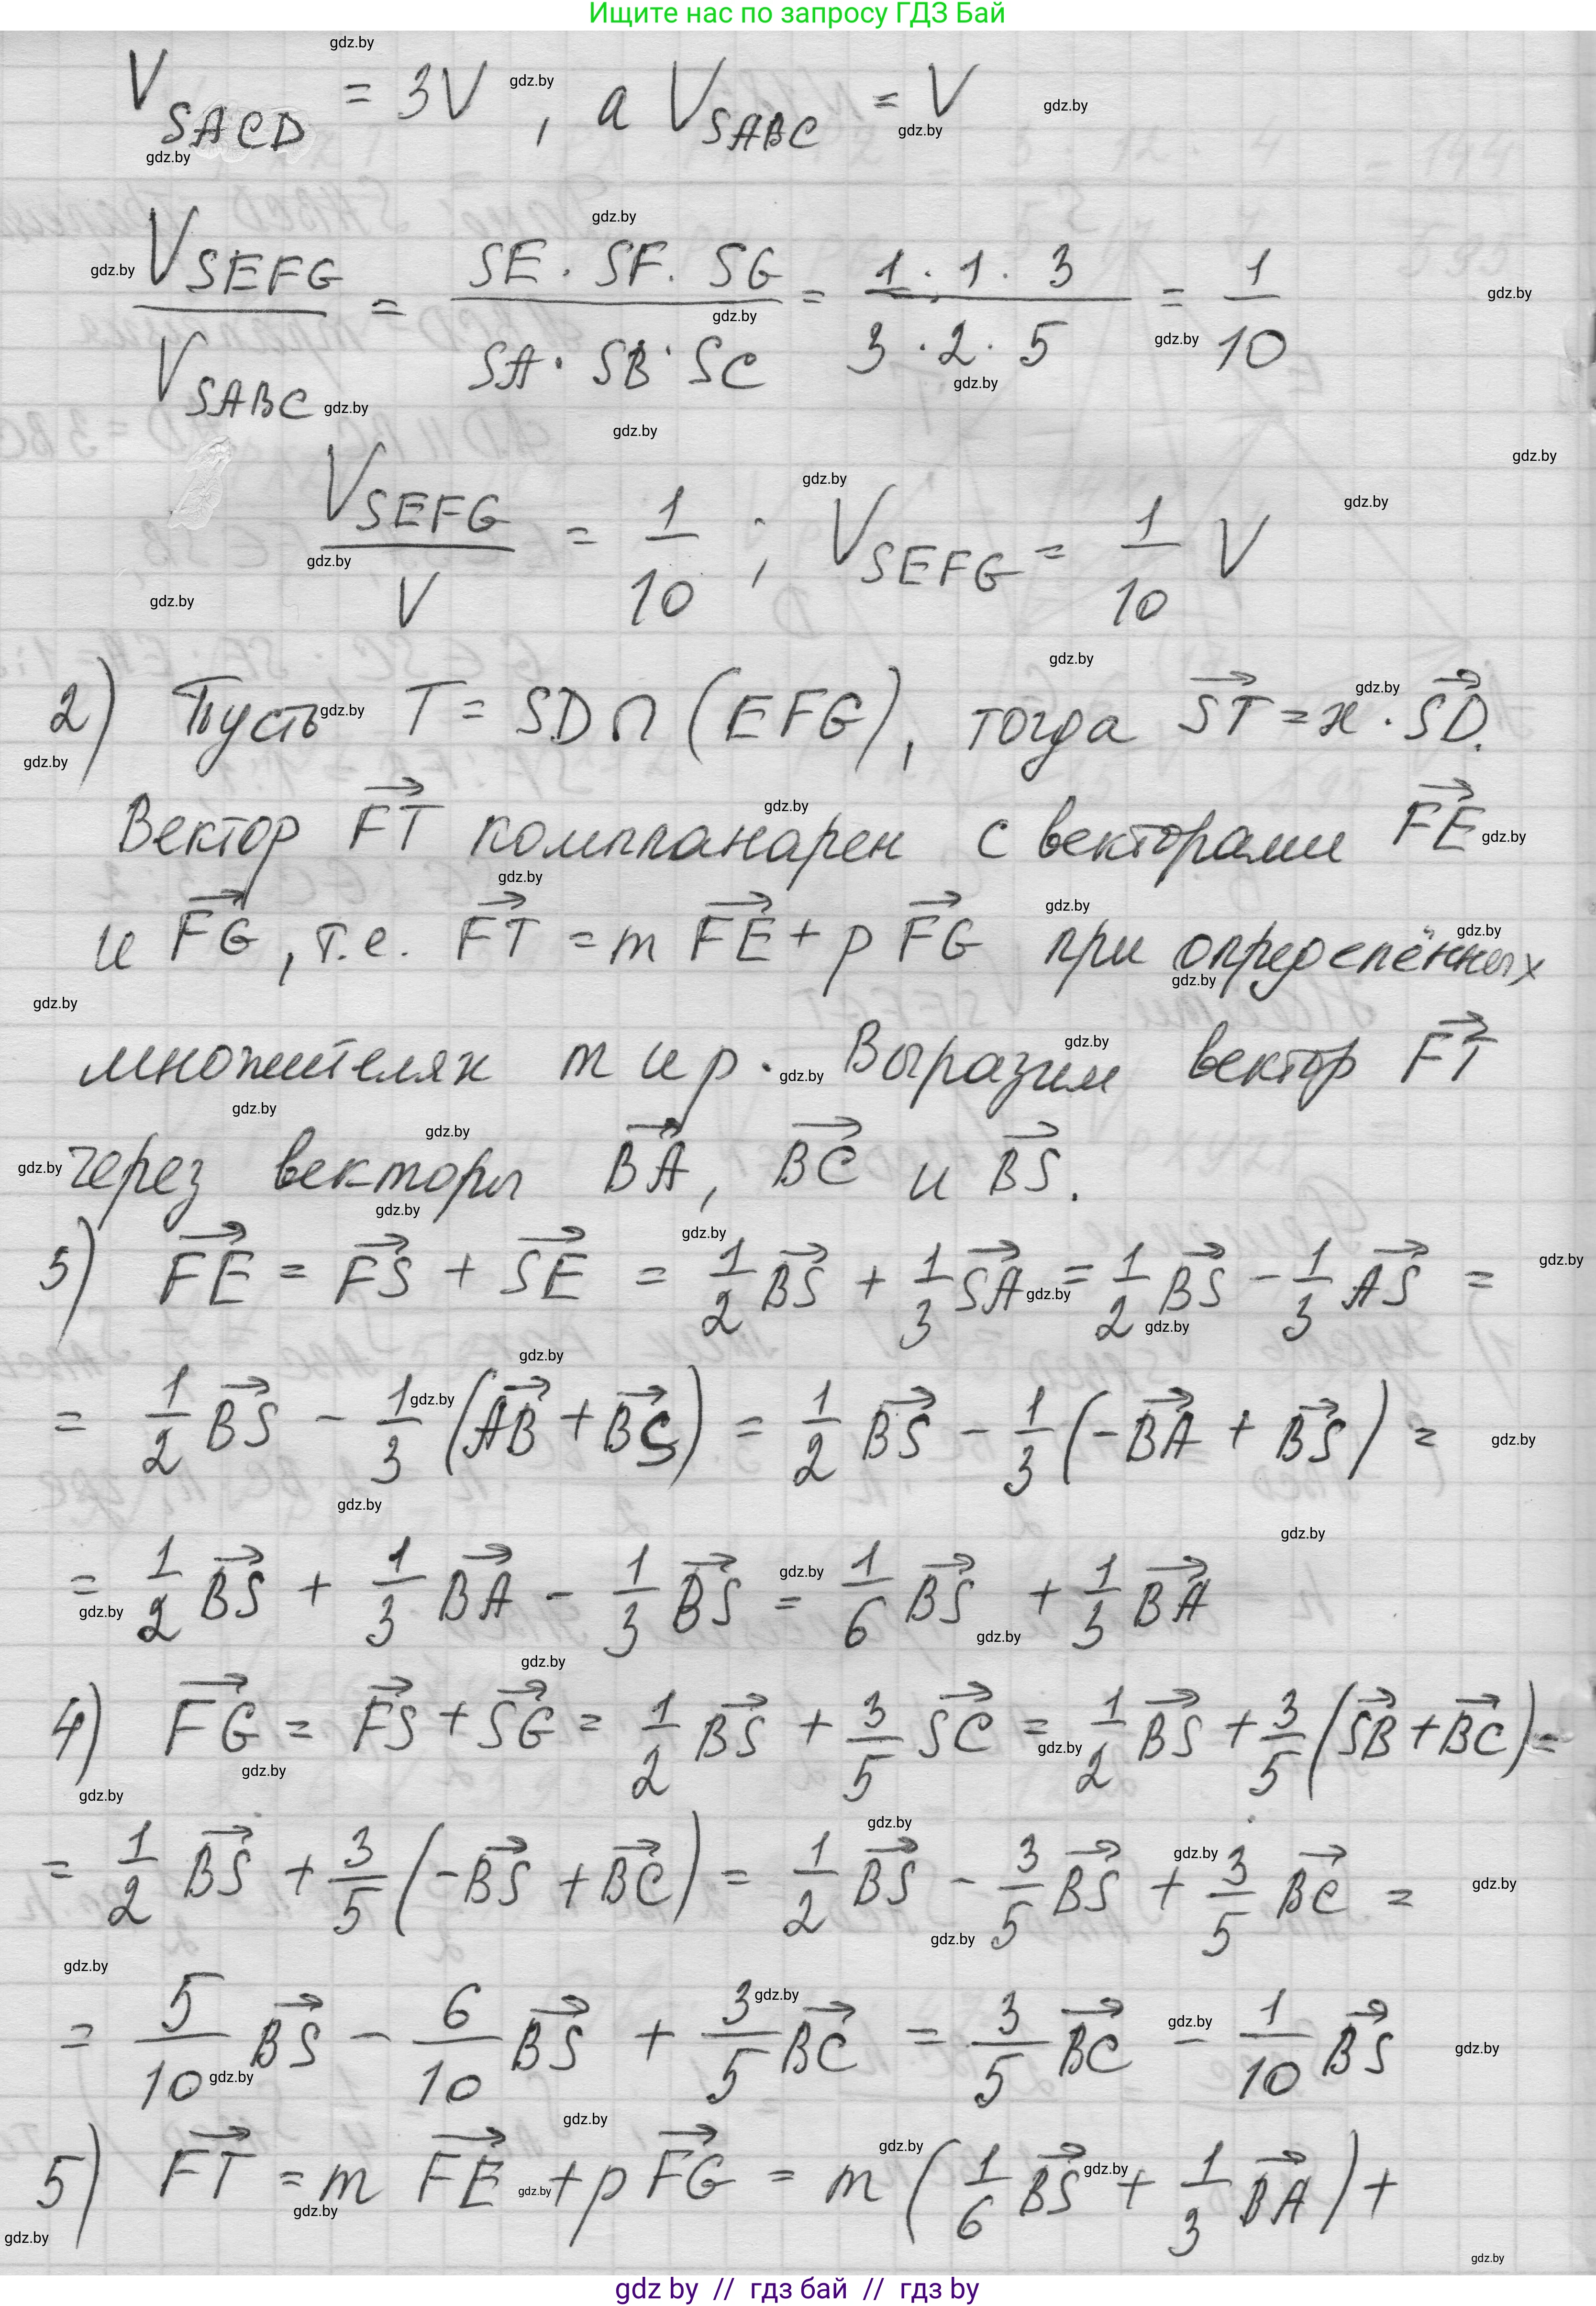 Ищите нас по запросу ГДЗ Бай
V_SACD = 3V, а V_SABC = V
V_SEFG / V_SABC = SE · SF · SG / SA · SB · SC = 1 · 1 · 3 / 3 · 2 · 5 = 1/10
V_SEFG / V = 1/10 ; V_SEFG = 1/10 V
2) Пусть T = SD ∩ (EFG), тогда ST→ = x · SD→.
Вектор FT→ компланарен с векторами FE→
и FG→, т.е. FT→ = m FE→ + p FG→ при определённых
множителях m и p. Выразим вектор FT→
через векторы BA→, BC→ и BS→.
3) FE→ = FS→ + SE→ = 1/2 BS→ + 1/3 SA→ = 1/2 BS→ − 1/3 AS→ =
= 1/2 BS→ − 1/3 (AB→ + BS→) = 1/2 BS→ − 1/3 (−BA→ + BS→) =
= 1/2 BS→ + 1/3 BA→ − 1/3 BS→ = 1/6 BS→ + 1/3 BA→
4) FG→ = FS→ + SG→ = 1/2 BS→ + 3/5 SC→ = 1/2 BS→ + 3/5 (SB→ + BC→) =
= 1/2 BS→ + 3/5 (−BS→ + BC→) = 1/2 BS→ − 3/5 BS→ + 3/5 BC→ =
= 5/10 BS→ − 6/10 BS→ + 3/5 BC→ = 3/5 BC→ − 1/10 BS→
5) FT→ = m FE→ + p FG→ = m (1/6 BS→ + 1/3 BA→) +
gdz by // гдз бай // гдз by